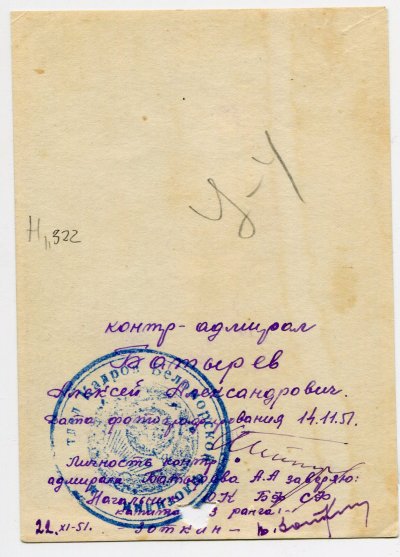 У-4
322
контр-адмирал
Батырев
Алексей Александрович.
Дата фотографирования 14.11.51.
Личность контр-
адмирала Батырева А.А заверяю:
Начальник ОК БФ СФ
капитан 3 ранга:-
Зоткин-
22.XI-51.